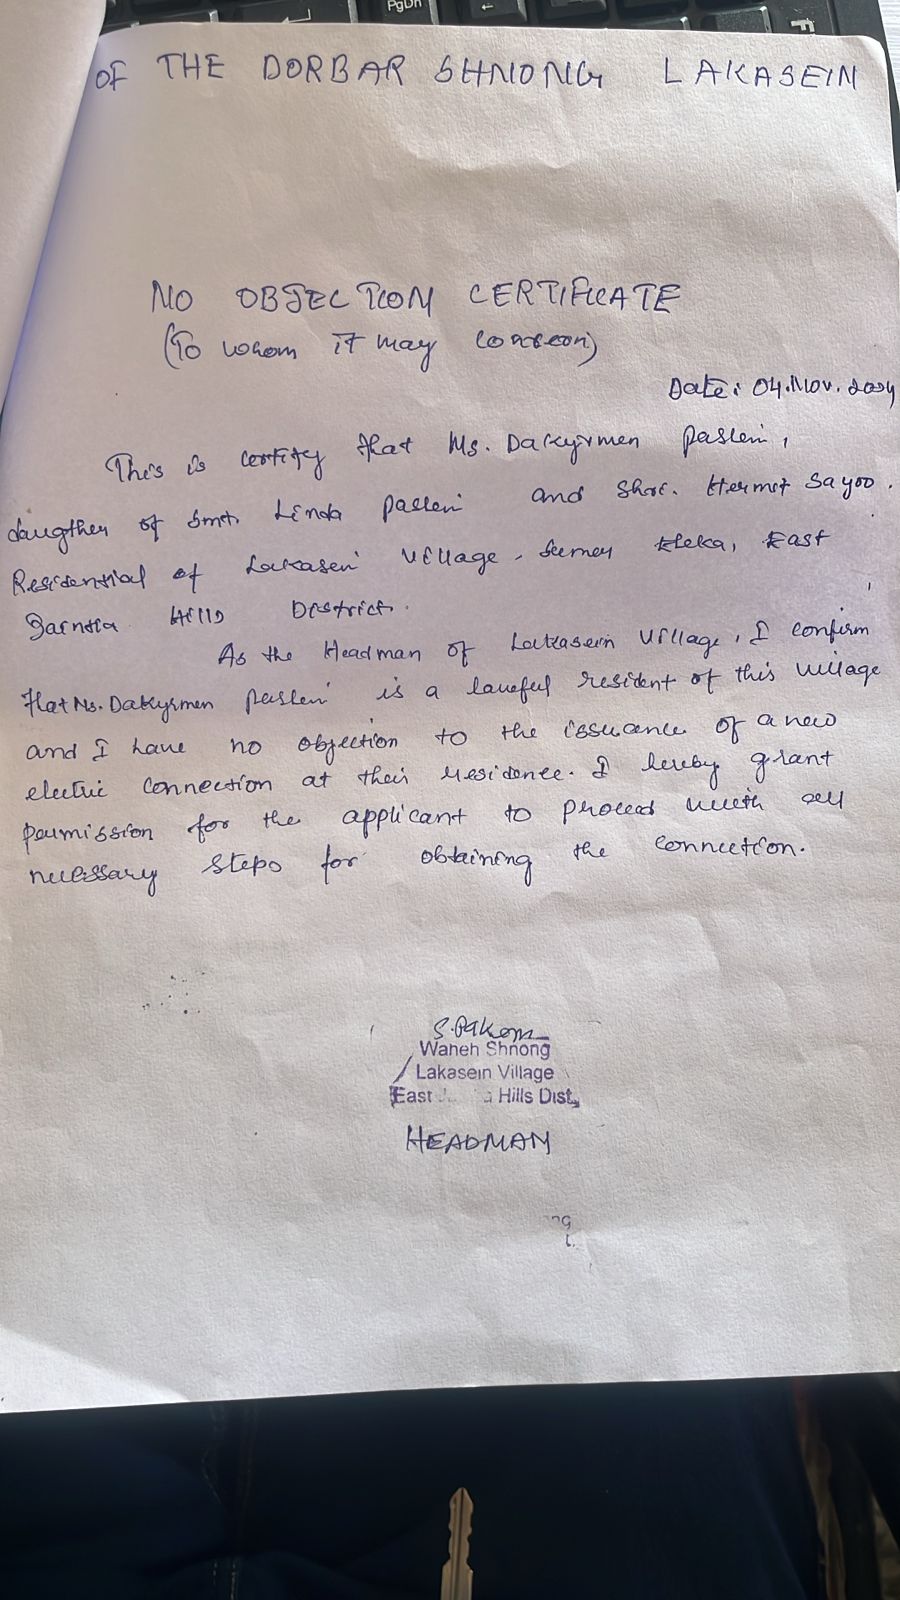 OF THE DORBAR SHNONG LAKASEIN
NO OBJECTION CERTIFICATE
(To whom it may concern)
Date: 04.Nov.2024
This is certify that Ms. Dakyrmen Paslein,
daugther of Smt. Linda Paslein and Shri. Hermit Sayoo.
Residential of Lakasein Village, Sumer Eleka, East
Jaintia Hills District.
As the Headman of Lakasein Village, I confirm
that Ms. Dakyrmen Paslein is a lawful resident of this village
and I have no objection to the issuance of a new
electric connection at their residence. I hereby grant
permission for the applicant to proceed with all
necessary steps for obtaining the connection.
Waheh Shnong
Lakasein Village
East Hills Dist.
HEADMAN